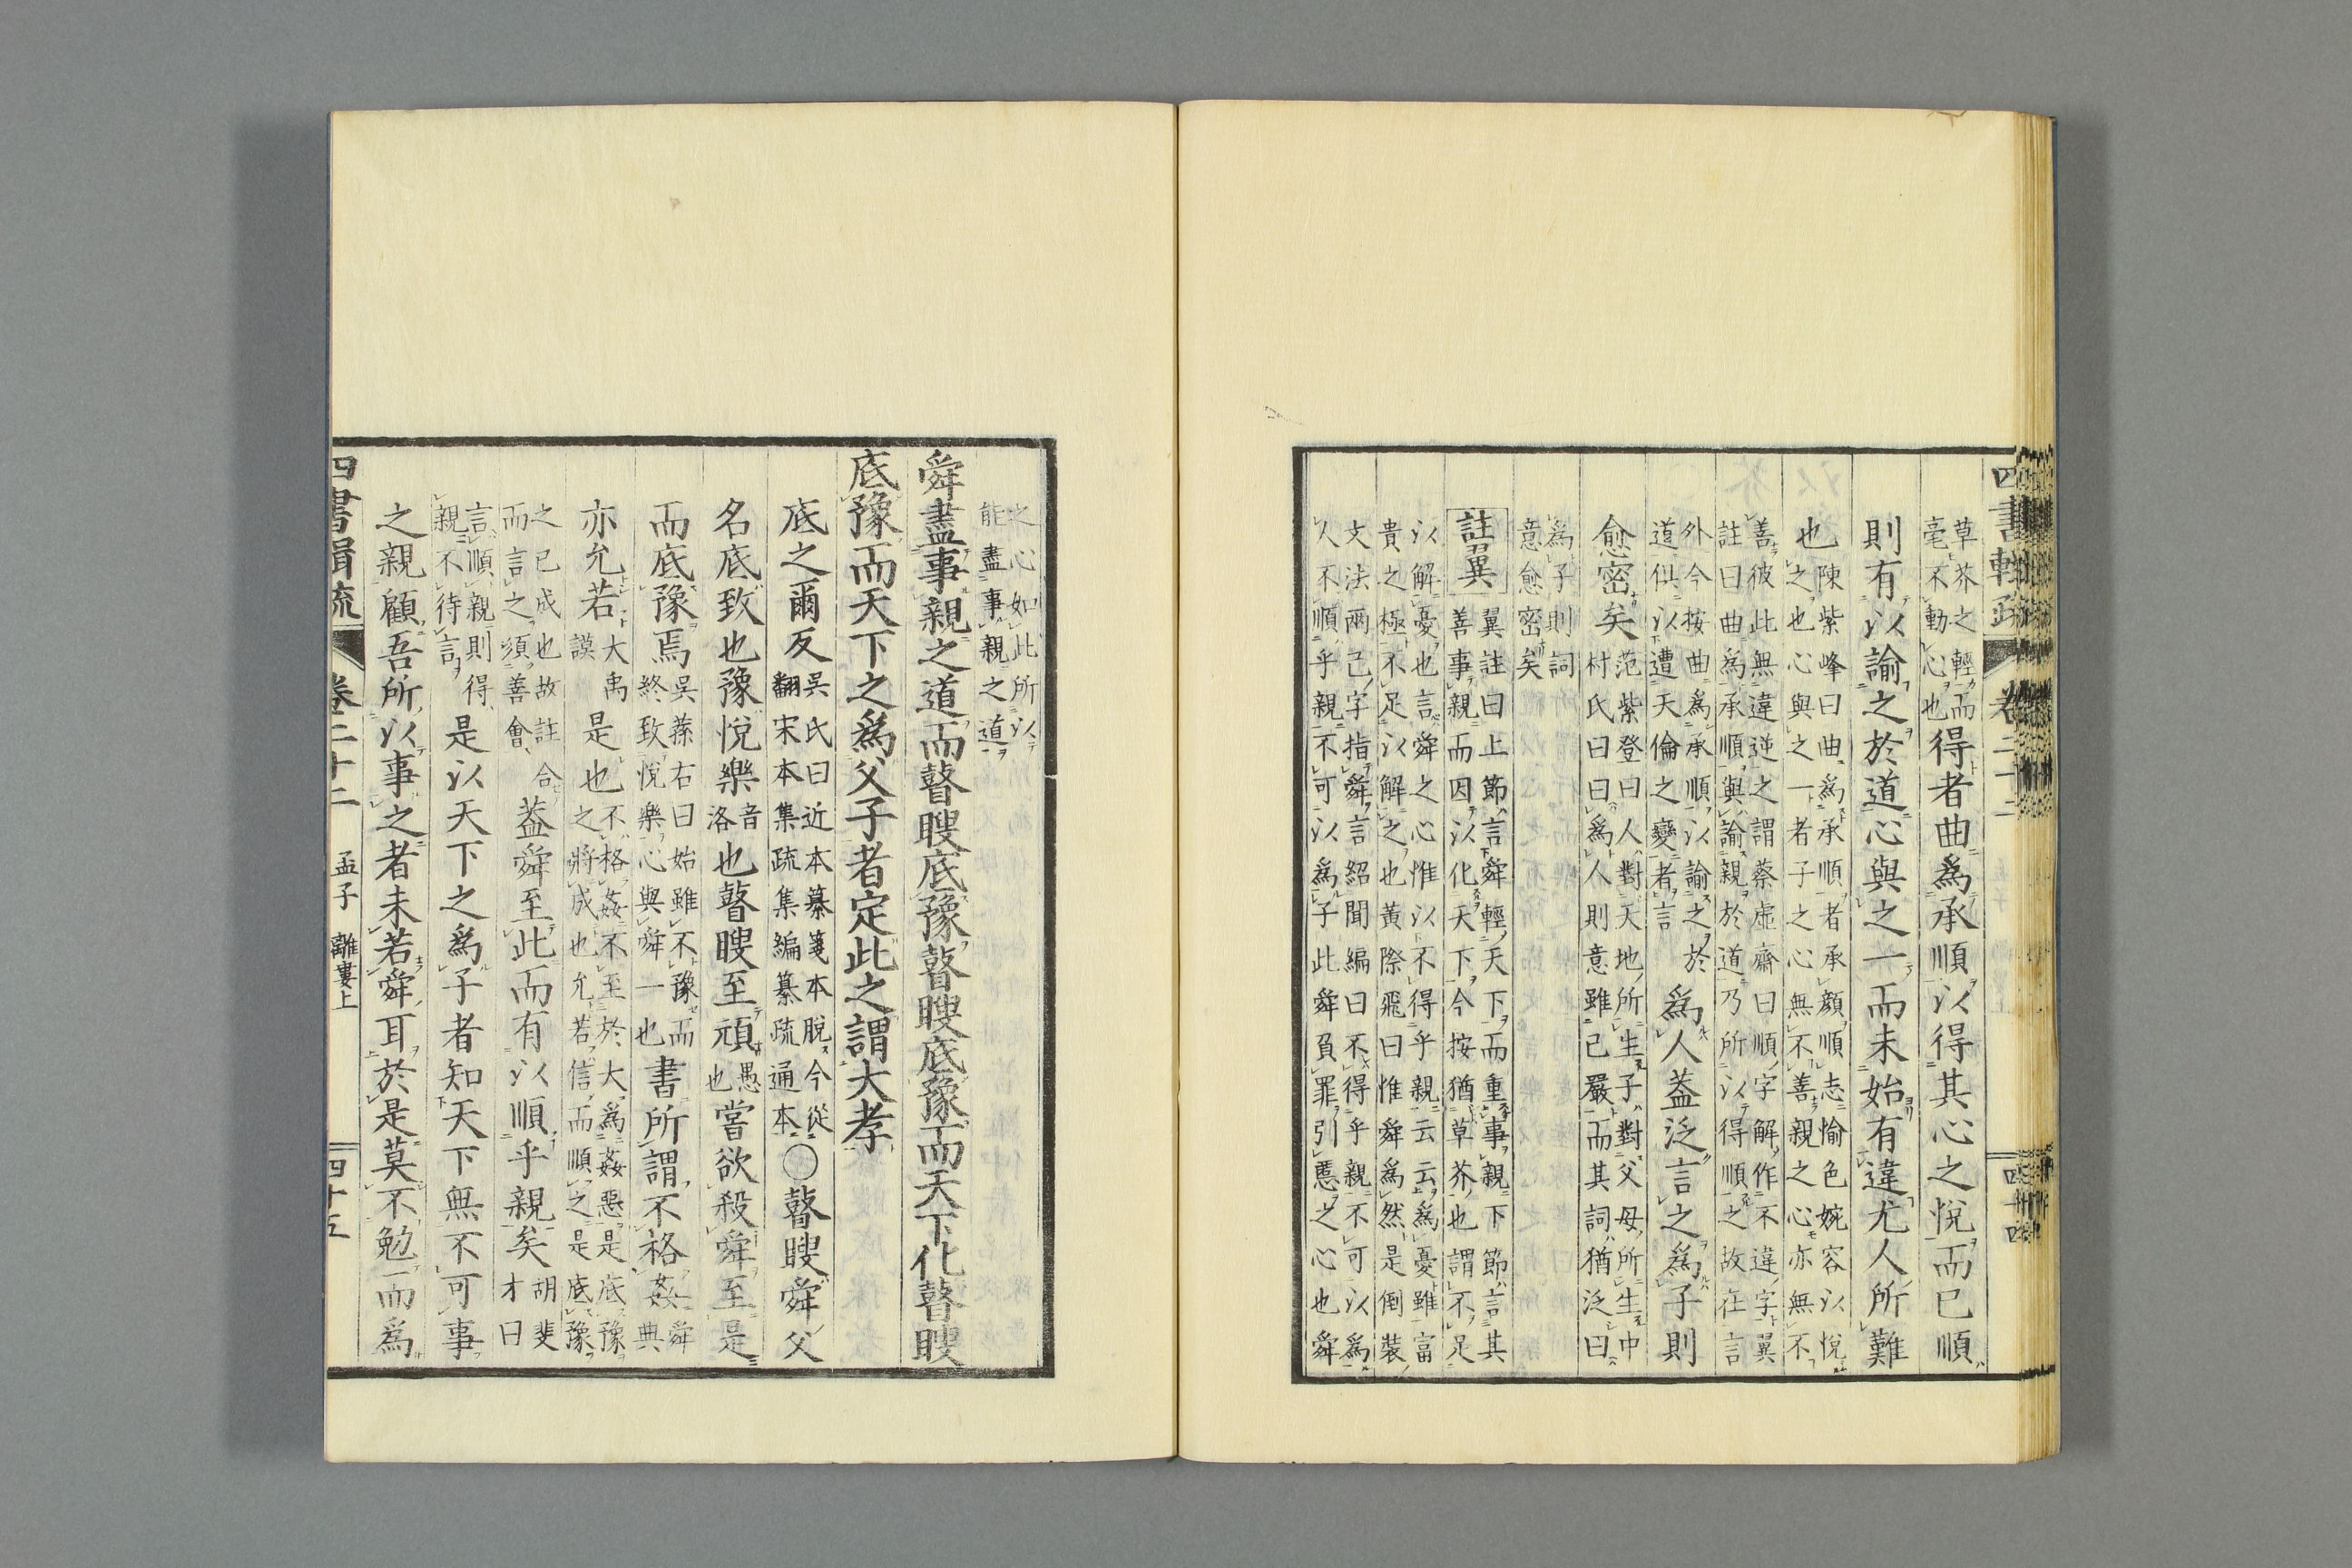 四書輯疏 卷二十二 四十四
草芥之輕而
毫不動心也
得者曲爲承順以得其心之悅而已順
則有以諭之於道心與之一而未始有違尤人所難
也
陳紫峰曰曲爲承順者承顔順志愉色婉容以悅
之也心與之一者子之心無不善親之心亦無不
善彼此無違逆之謂蔡虛齋曰順字解作不違字翼
註曰曲爲承順與諭親於道乃所以得順之故在言
外今按曲爲承順以諭之於
道似以遭天倫之變者言
爲人蓋泛言之爲子則
愈密矣
范紫登曰人對天地所生子對父母所生中
村氏曰曰爲人則意雖已嚴而其詞猶泛曰
爲子則詞
意愈密矣
註翼
翼註曰上節言舜輕天下而重事親下節言其
善事親而因以化天下今按猶草芥也謂不足
以解憂也言舜之心惟以不得乎親云云爲憂雖富
貴之極不足以解之也黃際飛曰惟舜爲然是倒裝
文法兩己字指舜言紹聞編曰不得乎親不可以爲
人不順乎親不可以爲子此舜負罪引慝之心也舜
之心如此所以
能盡事親之道
舜盡事親之道而瞽瞍底豫瞽瞍底豫而天下化瞽瞍
底豫而天下之爲父子者定此之謂大孝
底之爾反
吳氏曰近本纂箋本脫今從
翻宋本集疏集編纂疏通本
○瞽瞍舜父
名底致也豫悅樂
音
洛
也瞽瞍至頑
愚
也
嘗欲殺舜至是
而底豫焉
吳蓀右曰始雖不豫而
終致悅樂心與舜一也
書所謂不格姦
舜
典
亦允若
大禹
謨
是也
不格姦不至於大爲姦惡是底豫
之將成也允若信而順之是底豫
之已成也故註合
而言之須善會
蓋舜至此而有以順乎親矣
胡斐
才曰
言順親則得
親不待言
是以天下之爲子者知天下無不可事
之親顧吾所以事之者未若舜耳於是莫不勉而爲
四書輯疏 卷二十二 孟子 離婁上 四十五